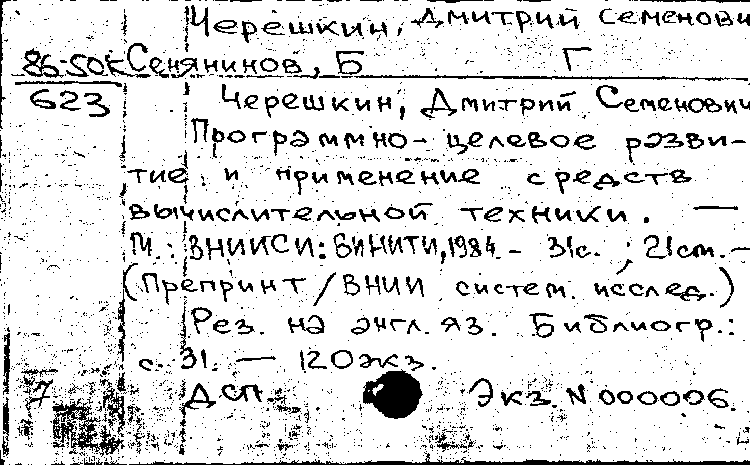 Черешкин, Дмитрий Семенови
86-50к Сенянинов, Б Г
623 Черешкин, Дмитрий Семенович
Программно-целевое разви-
тие и применение средств
вычислительной техники. —
М.: ВНИИСИ: ВИНИТИ, 1984. - 31с. ; 21см. -
(Препринт / ВНИИ систем. исслед.)
Рез. на англ. яз. Библиогр.:
с. 31. — 120экз.
7 ДСП. Экз. N 000006.